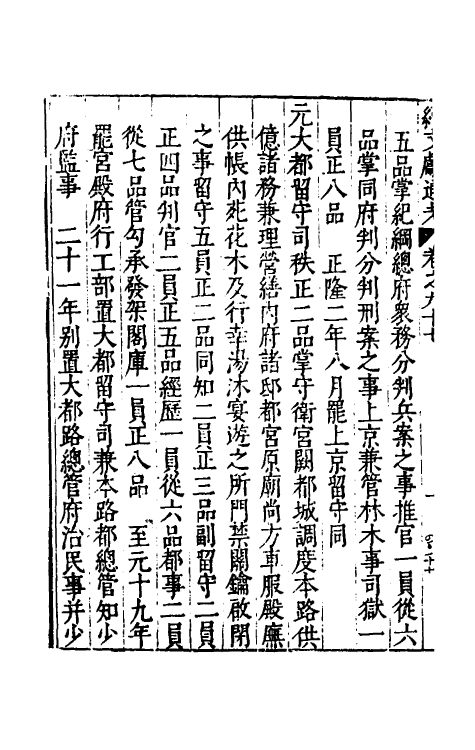 五品掌紀綱總府衆務分判兵案之事推官一員從六
品掌同府判分判刑案之事上京兼管林木事司獄一
員正八品　正隆二年八月罷上京留守同
元大都留守司秩正二品掌守衛宮闕都城調度本路供
億諸務兼理營繕內府諸邸都宮原廟尚方車服殿廡
供帳內苑花木及行幸湯沐宴遊之所門禁關鑰啟閉
之事留守五員正二品同知二員正三品副留守二員
正四品判官二員正五品經歷一員從六品都事二員
從七品管勾承發架閣庫一員正八品　至元十九年
罷宮殿府行工部置大都留守司兼本路都總管知少
府監事　二十一年别置大都路總管府治民事并少